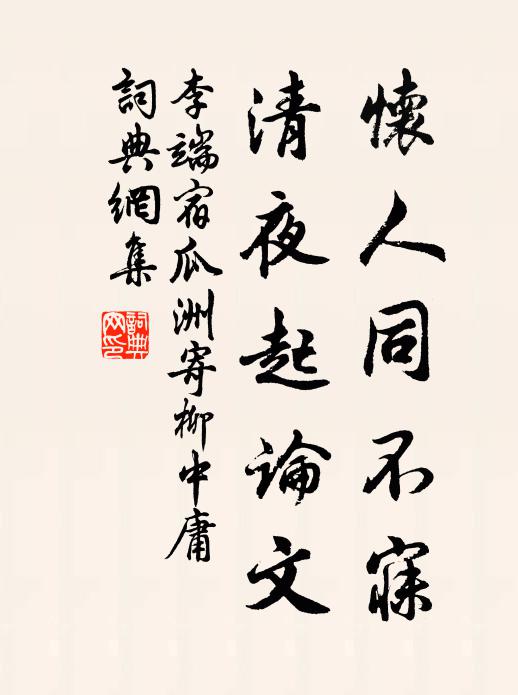 懷人同不寐
清夜起論文
李端宿瓜洲寄柳中庸
詞典網集
詞典網印